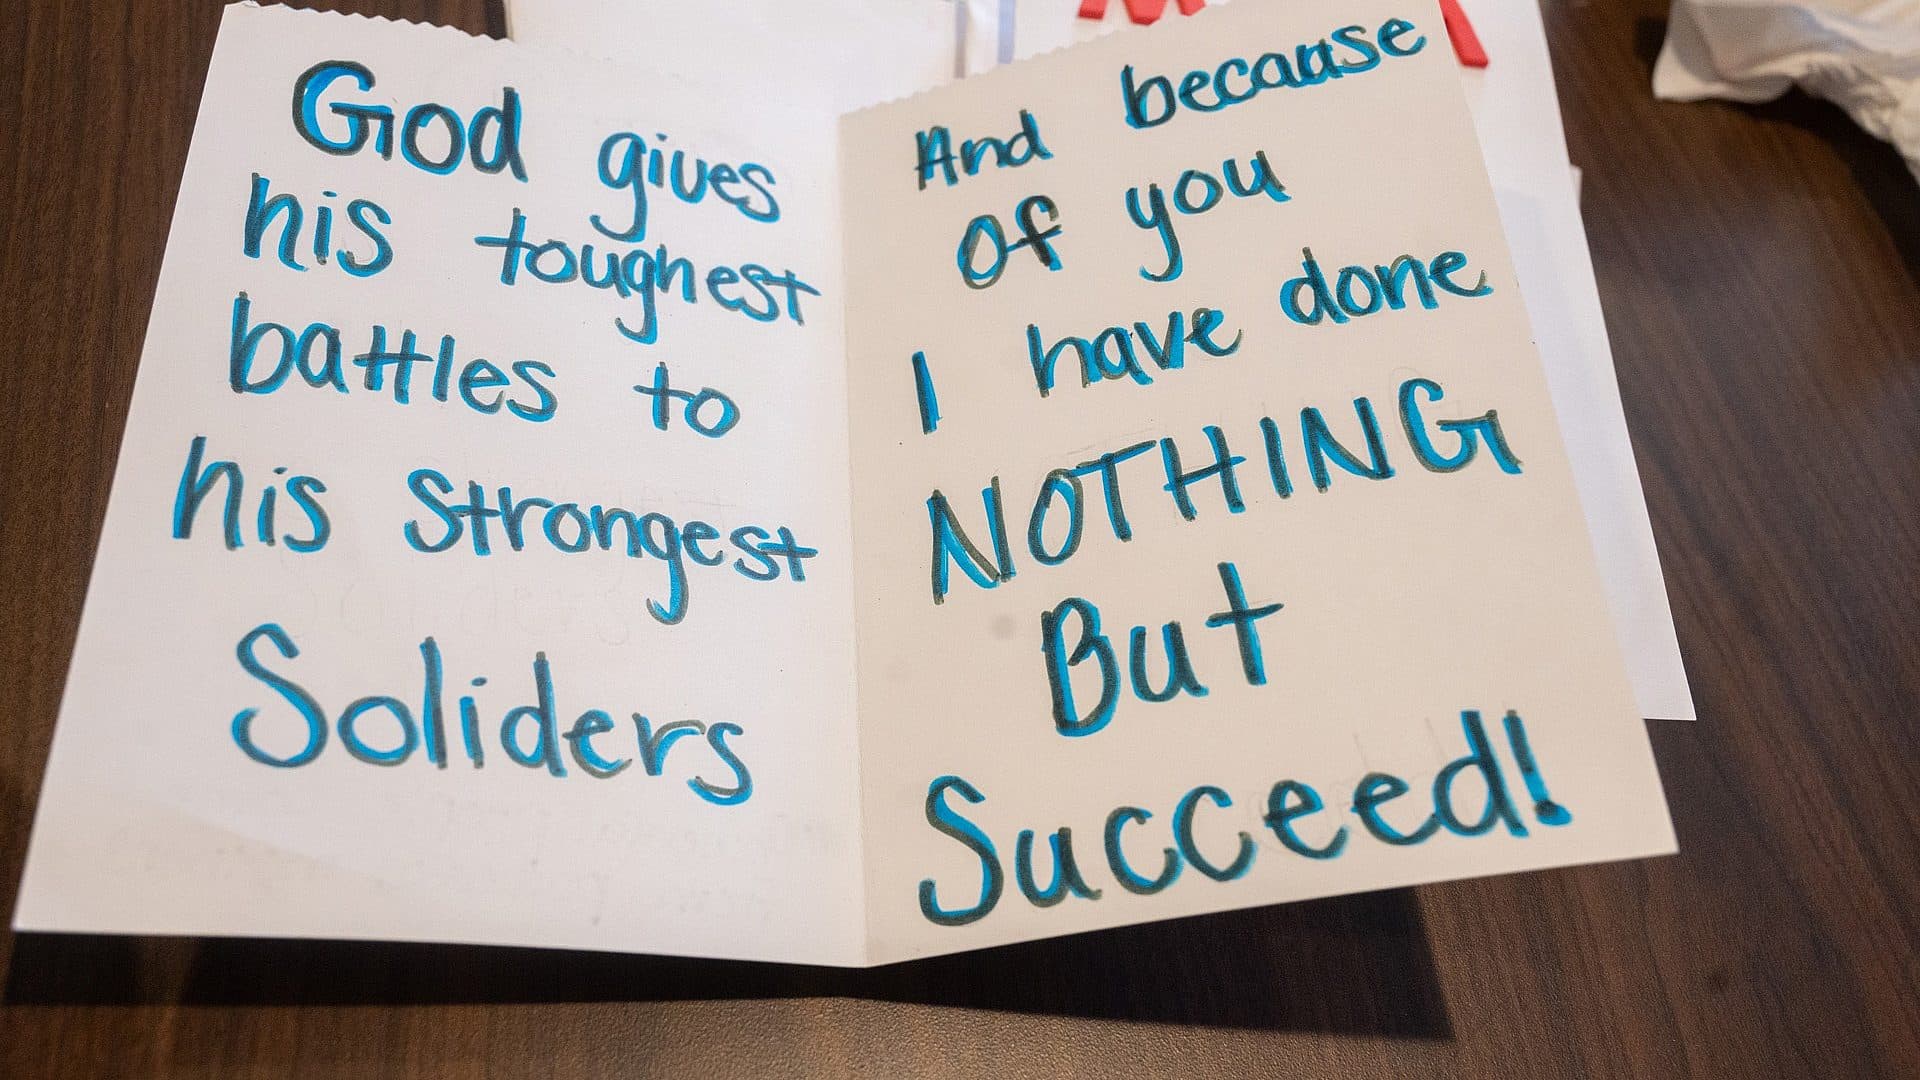 God gives
his toughest
battles to
his strongest
Soliders
And because
of you
I have done
NOTHING
But
Succeed!